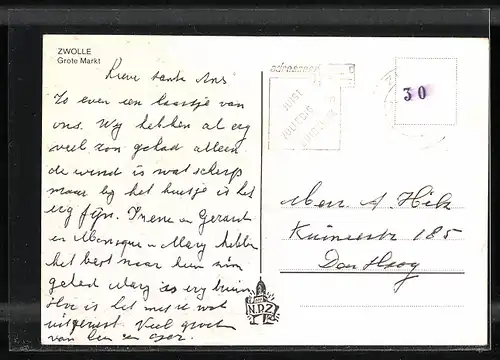 ZWOLLE
Grote Markt
Lieve tante Ans
Zo even een kaartje van
ons. Wij hebben al erg
veel zon gehad alleen
de wind is wat scherp
maar bij het huisje is het
erg fijn. Irene en Gerard
en Monique en Mary hebben
het best naar hun zin
gehad Mary is erg bruin
Hoe is het met je wat
uitgerust. Veel groeten
van
adresseer
JUIST
VOLLEDIG
DUIDELIJK
30
Mevr. A. Hik
Kuinrestr 185
Den Haag
N.D.Z